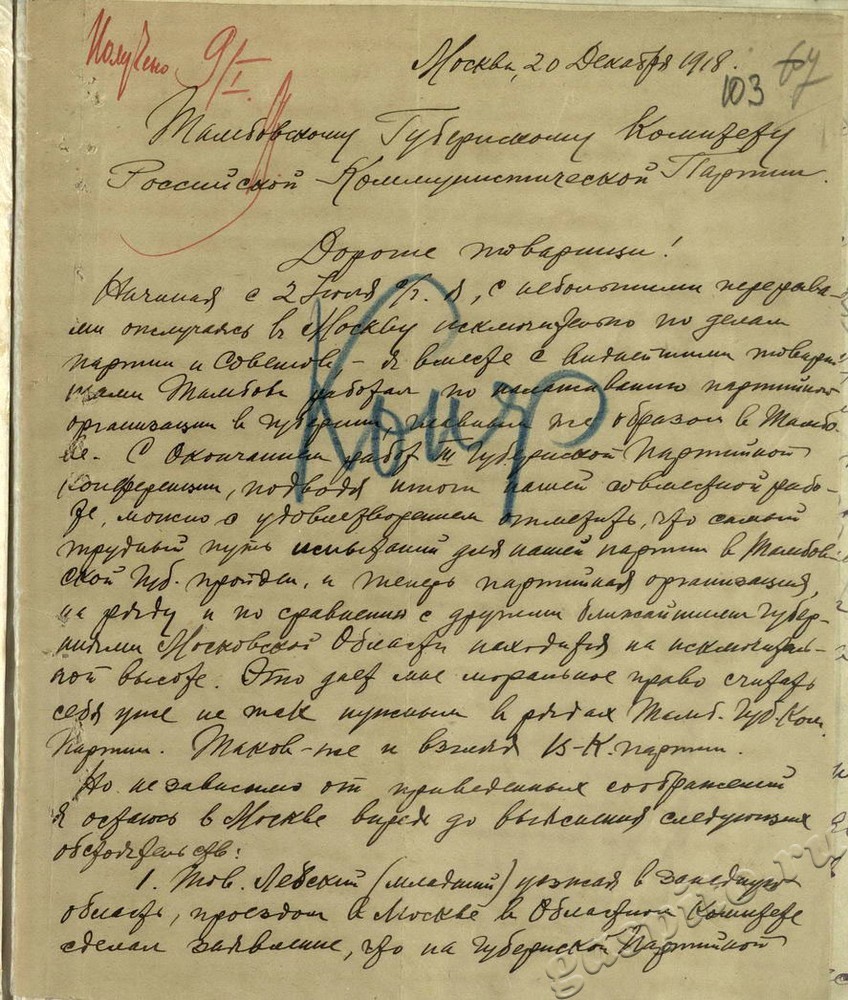 Получено 9/I.
Москва, 20 Декабря 1918.
103 67
Тамбовскому Губернскому Комитету
Российской Коммунистической Партии.
Дорогие товарищи!
Начиная с 2 Июля с/г. я, с небольшими переры­ва-
ми отлучаясь в Москву исключительно по делам
партии и Советов, – я вместе с виднейшими товари-
щами Тамбова работал по налаживанию партийной
организации в губернии, главным же образом в Тамбо-
ве. С окончанием работ III Губернской Партийной
Конференции, подводя итоги нашей совместной рабо-
те, можно с удовлетворением отметить, что самый
трудный путь испытаний для нашей партии в Тамбов-
ской Губ. пройден, и теперь партийная организация,
на ряду и по сравнению с другими ближайшими Губер-
ниями Московской Области находится на исключитель-
ной высоте. Это дает мне моральное право считать
себя уже не так нужным в рядах Тамб. Губ. Ком.
Партии. Таков-же и взгляд К. партии.
Но независимо от приведенных соображений
я остаюсь в Москве впредь до выяснения следующих
обстоятельств:
1. Тов. Левский (младший) уезжая в западную
область, проездом в Москве в Областном Комитете
сделал заявление, что на Губернской Партийной
gaspito.ru